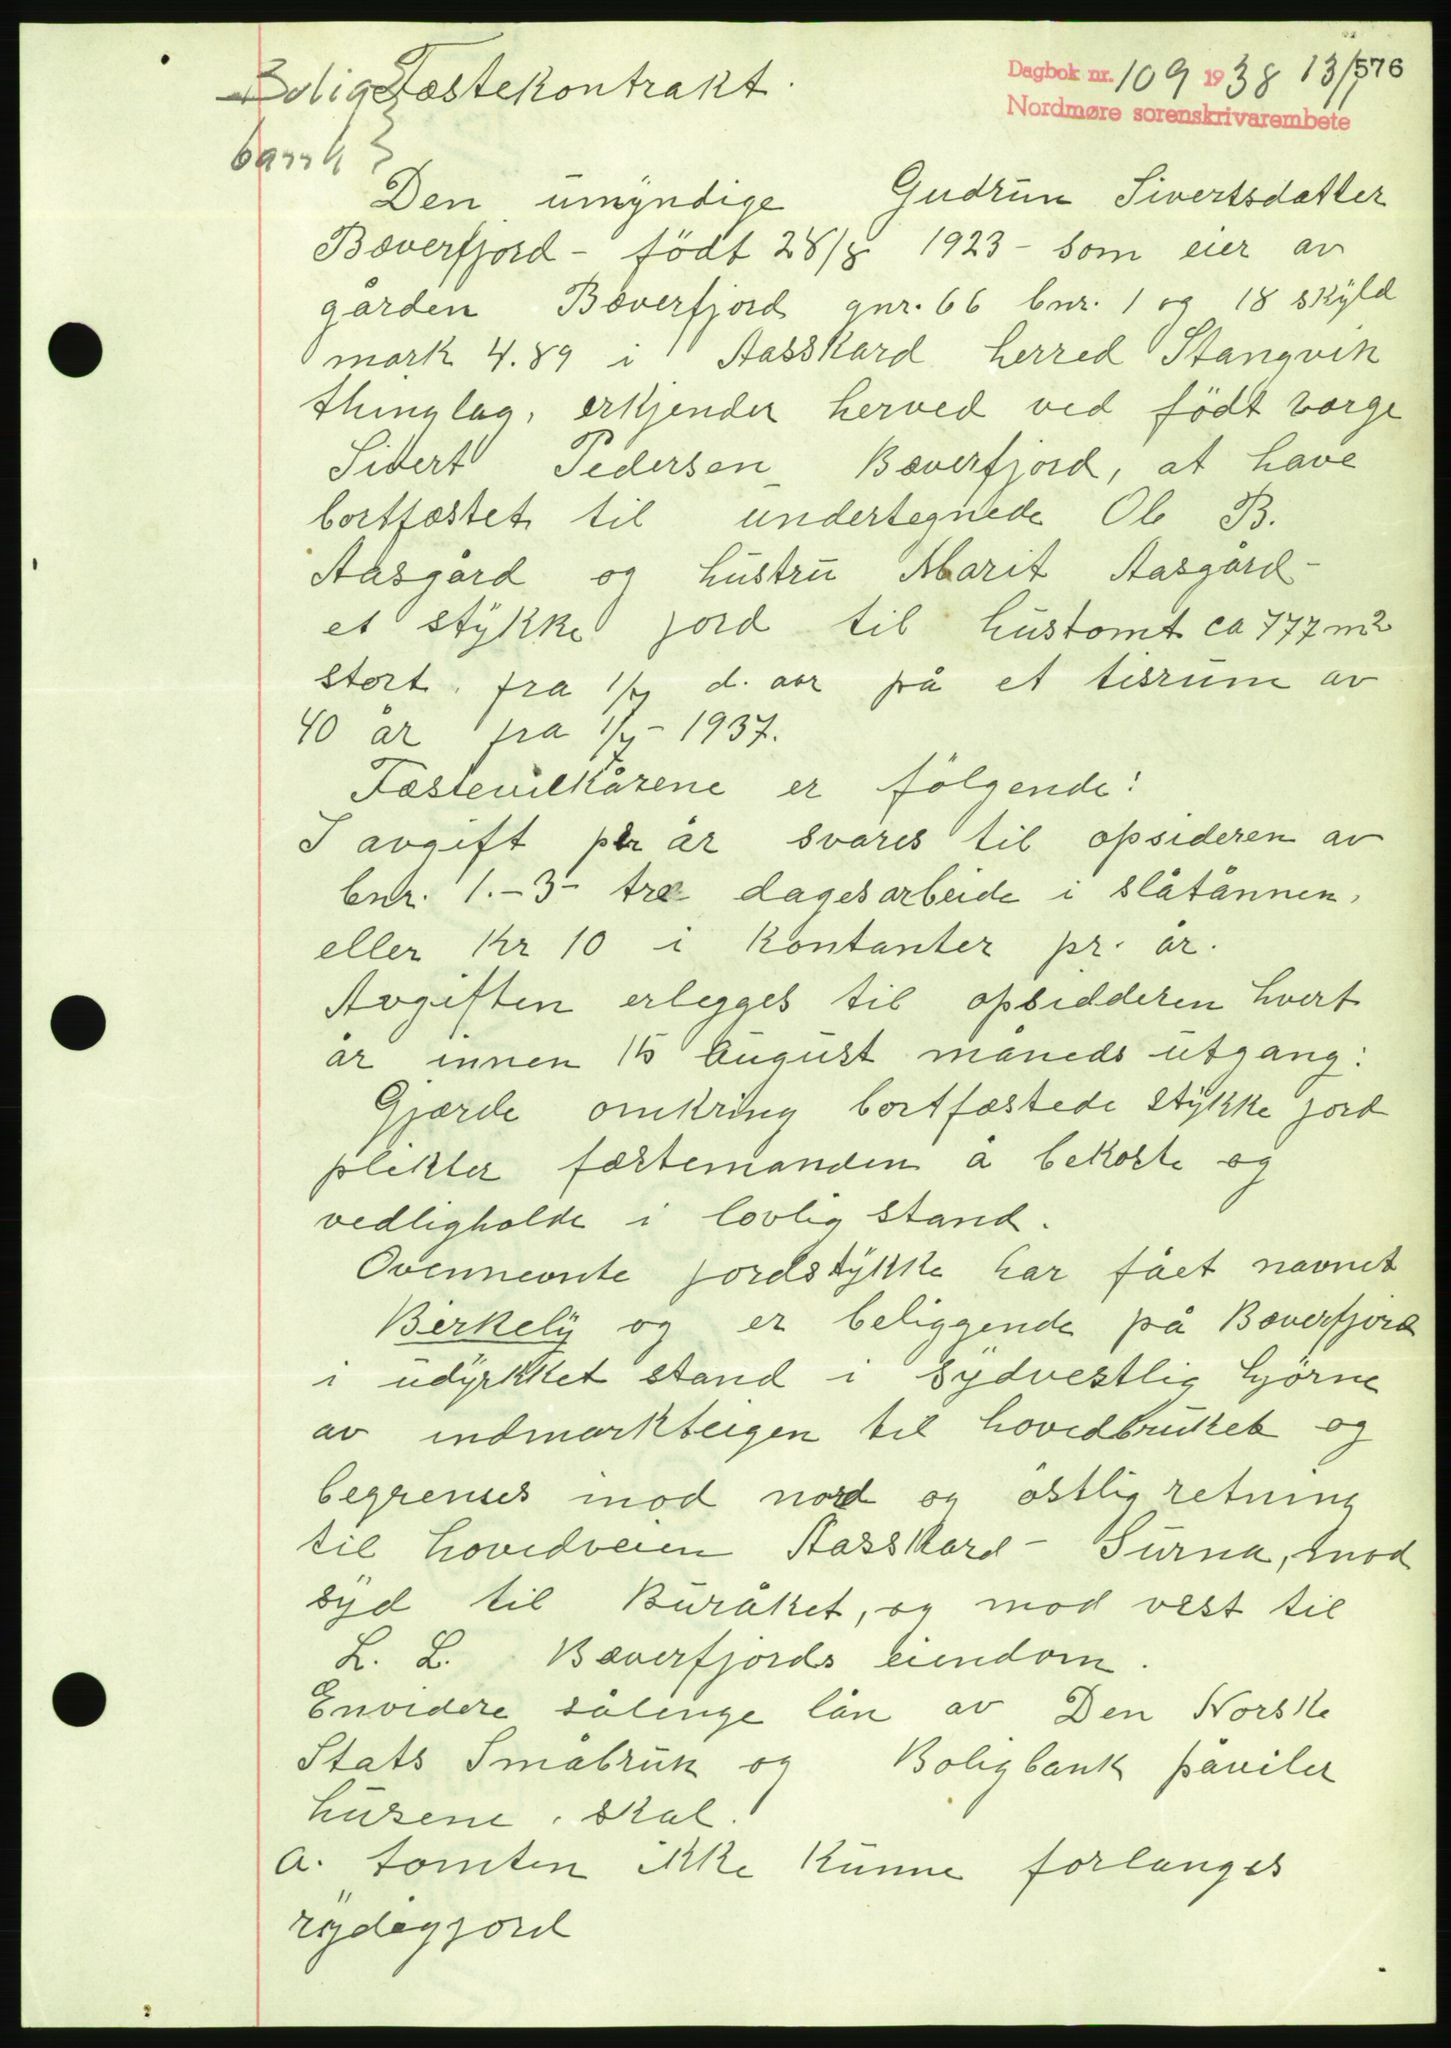 Bolig Fæstekontrakt.
bank
Dagbok nr. 109 1938 13/1 576
Nordmøre sorenskrivarembete
Den umyndige Gudrun Sivertsdatter
Bæverfjord - født 28/8 1923 - som eier av
gården Bæverfjord gnr. 66 bnr. 1 og 18 skyld
mark 4.89 i Aasskard herred Stangvik
thinglag, erkjender herved ved født værge
Sivert Pedersen Bæverfjord, at have
bortfæstet til undertegnede Ole B.
Aasgård og hustru Marit Aasgård -
et stykke jord til hustomt ca 777 m2
stort. fra 1/7 d. aar på et tisrum av
40 år fra 1/7 - 1937.
Fæstevilkårene er følgende:
I avgift pr år svares til opsideren av
bnr. 1. - 3 - tre dagesarbeide i slåtånnen,
eller Kr 10 i kontanter pr. år.
Avgiften erlegges til opsidderen hvert
år innen 15 august måneds utgang:
Gjærde omkring bortfæstede stykke jord
plikter fæstemanden å bekoste og
vedligholde i lovlig stand.
Ovennevnte jordstykke har fået navnet
Birkely og er beliggende på Bæverfjord
i udyrkket stand i sydvestlig hjørne
av indmarkteigen til hovedbruket og
begrenses mod nord og østlig retning
til hovedveien Aasskard - Surna, mod
syd til Buråket, og mod vest til
L. L. Bæverfjords eiendom.
Envidere sålenge lån av Den Norske
Stats Småbruk og Boligbank påviler
husene, skal.
a. tomten ikke kunne forlanges
rydiggjord